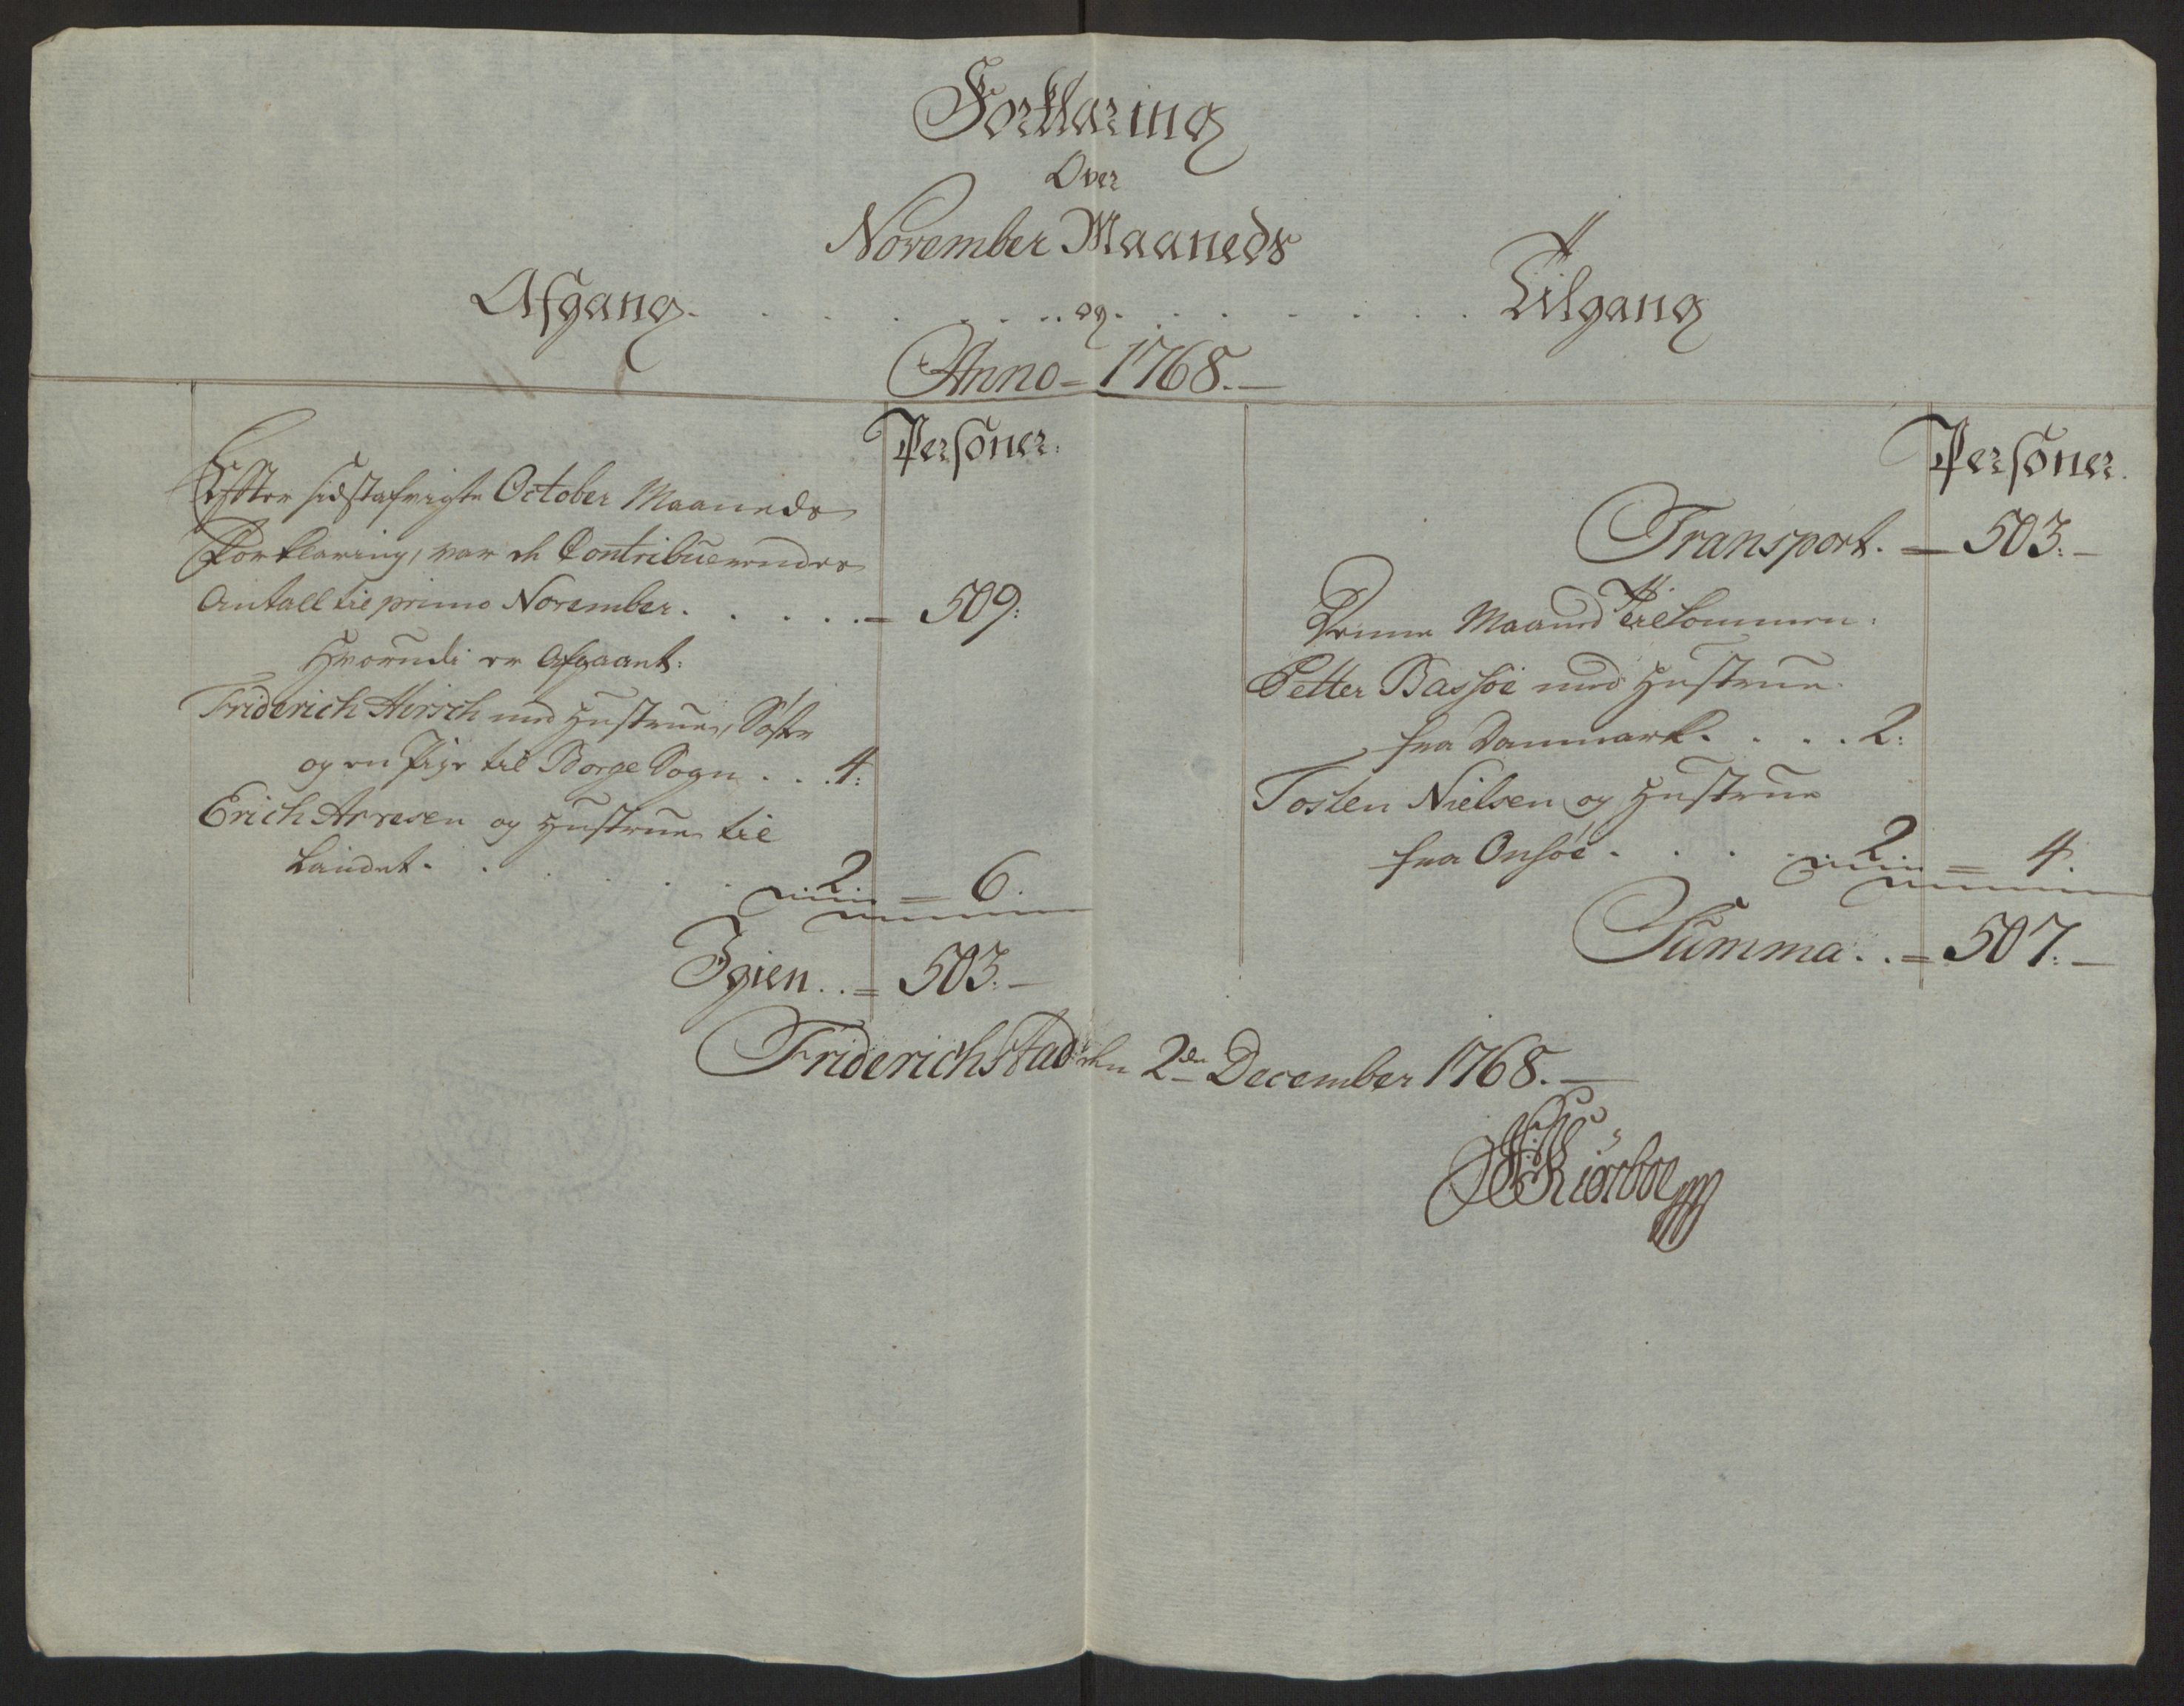 Forklaring
Over
November Maaneds
Afgang. . . . . . . og . . . . . . Tilgang
Anno = 1768. —
Personer.
Effter sidstafvigte October Maaneds
Forklaring, var de Contribuerendes
Antall til primo November . . . . . = 509:
Hvorudi er Afgaaet:
Friderich Hirsch med Hustrue, Søster
og en Pige til Borge Sogn . . . 4:
Erich Arresen og Hustrue til
Landet . . . . . . 2. = 6.
Igien . . = 503. —
Personer.
Transport. — 503. —
Denne Maaned Tilkommen:
Petter Bassøe med Hustrue
fra Danmark . . . . 2:
Tosten Nielsen og Hustrue
fra Onsøe . . . . . 2. = 4.
Summa . . = 507. —
Friderichstad den 2den December 1768. —
Kiørboe